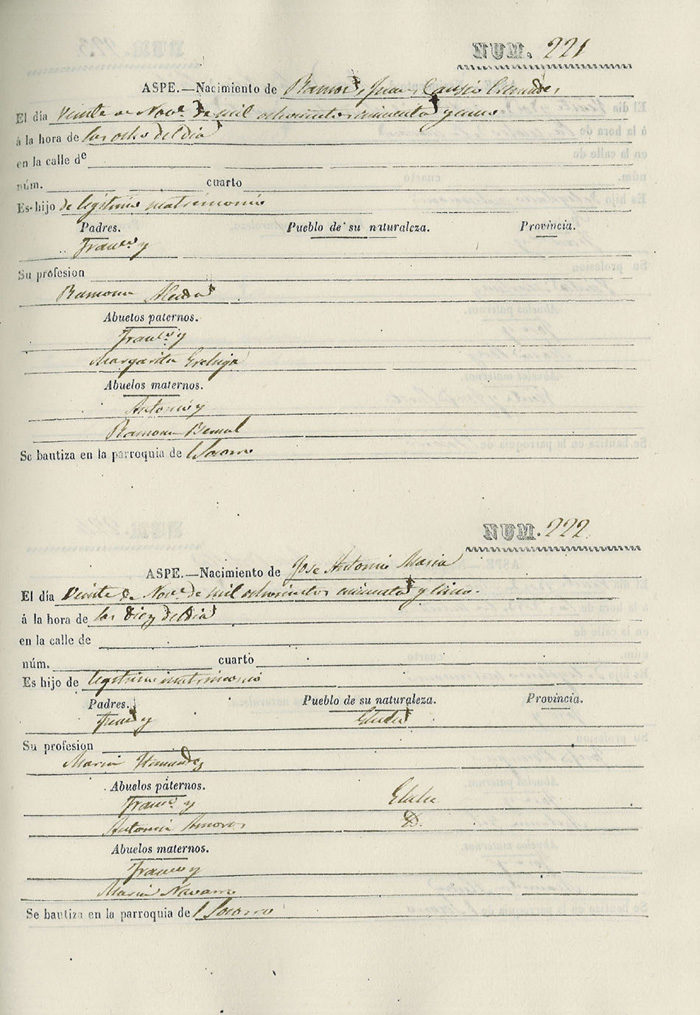 NUM. 221
ASPE.—Nacimiento de Ramon, Juan
El dia Veinte de Nov.e de mil ochocientos cincuenta y cinco
á la hora de las ocho del dia
en la calle de
núm. cuarto
Es hijo de legitimo matrimonio
Padres. Pueblo de su naturaleza. Provincia.
Fran.co y
Su profesion
Ramona
Abuelos paternos.
Fran.co y
Margarita
Abuelos maternos.
Antonio y
Ramona Bernal
Se bautiza en la parroquia de l Socorro
NUM. 222
ASPE.—Nacimiento de Jose Antonio Maria
El dia Veinte de Nov.e de mil ochocientos cincuenta y cinco
á la hora de las Diez del dia
en la calle de
núm. cuarto
Es hijo de legitimo matrimonio
Padres. Pueblo de su naturaleza. Provincia.
Fran.co y Elche
Su profesion
Maria Hernandez
Abuelos páternos.
Fran.co y Elche
Antonia Amoros D.
Abuelos maternos.
Fran.co y
Maria Navarro
Se bautiza en la parroquia de l Socorro